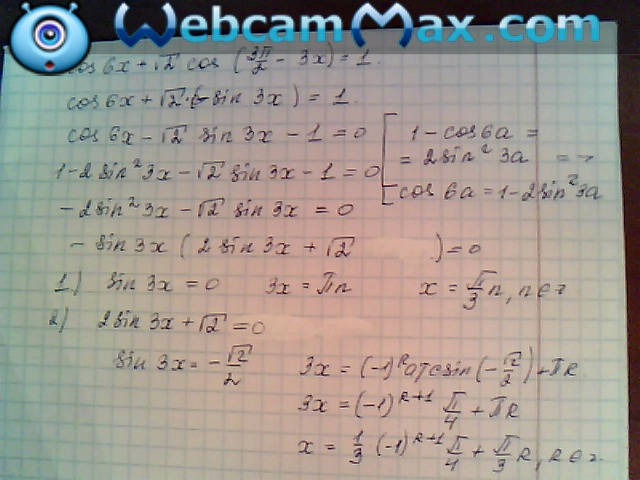 WebcamMax.com
cos 6x + √2 cos (3π/2 - 3x) = 1.
cos 6x + √2·(-sin 3x) = 1.
cos 6x - √2 sin 3x - 1 = 0
1 - 2 sin² 3x - √2 sin 3x - 1 = 0
1 - cos 6a =
= 2 sin² 3a =>
cos 6a = 1 - 2 sin² 3a
- 2 sin² 3x - √2 sin 3x = 0
- sin 3x ( 2 sin 3x + √2 ) = 0
1) sin 3x = 0 3x = πn x = π/3 n, n ∈ z
2) 2 sin 3x + √2 = 0
sin 3x = - √2/2 3x = (-1)^k arcsin (-√2/2) + πk
3x = (-1)^k+1 π/4 + πk
x = 1/3 (-1)^k+1 π/4 + π/3 k, k ∈ z.